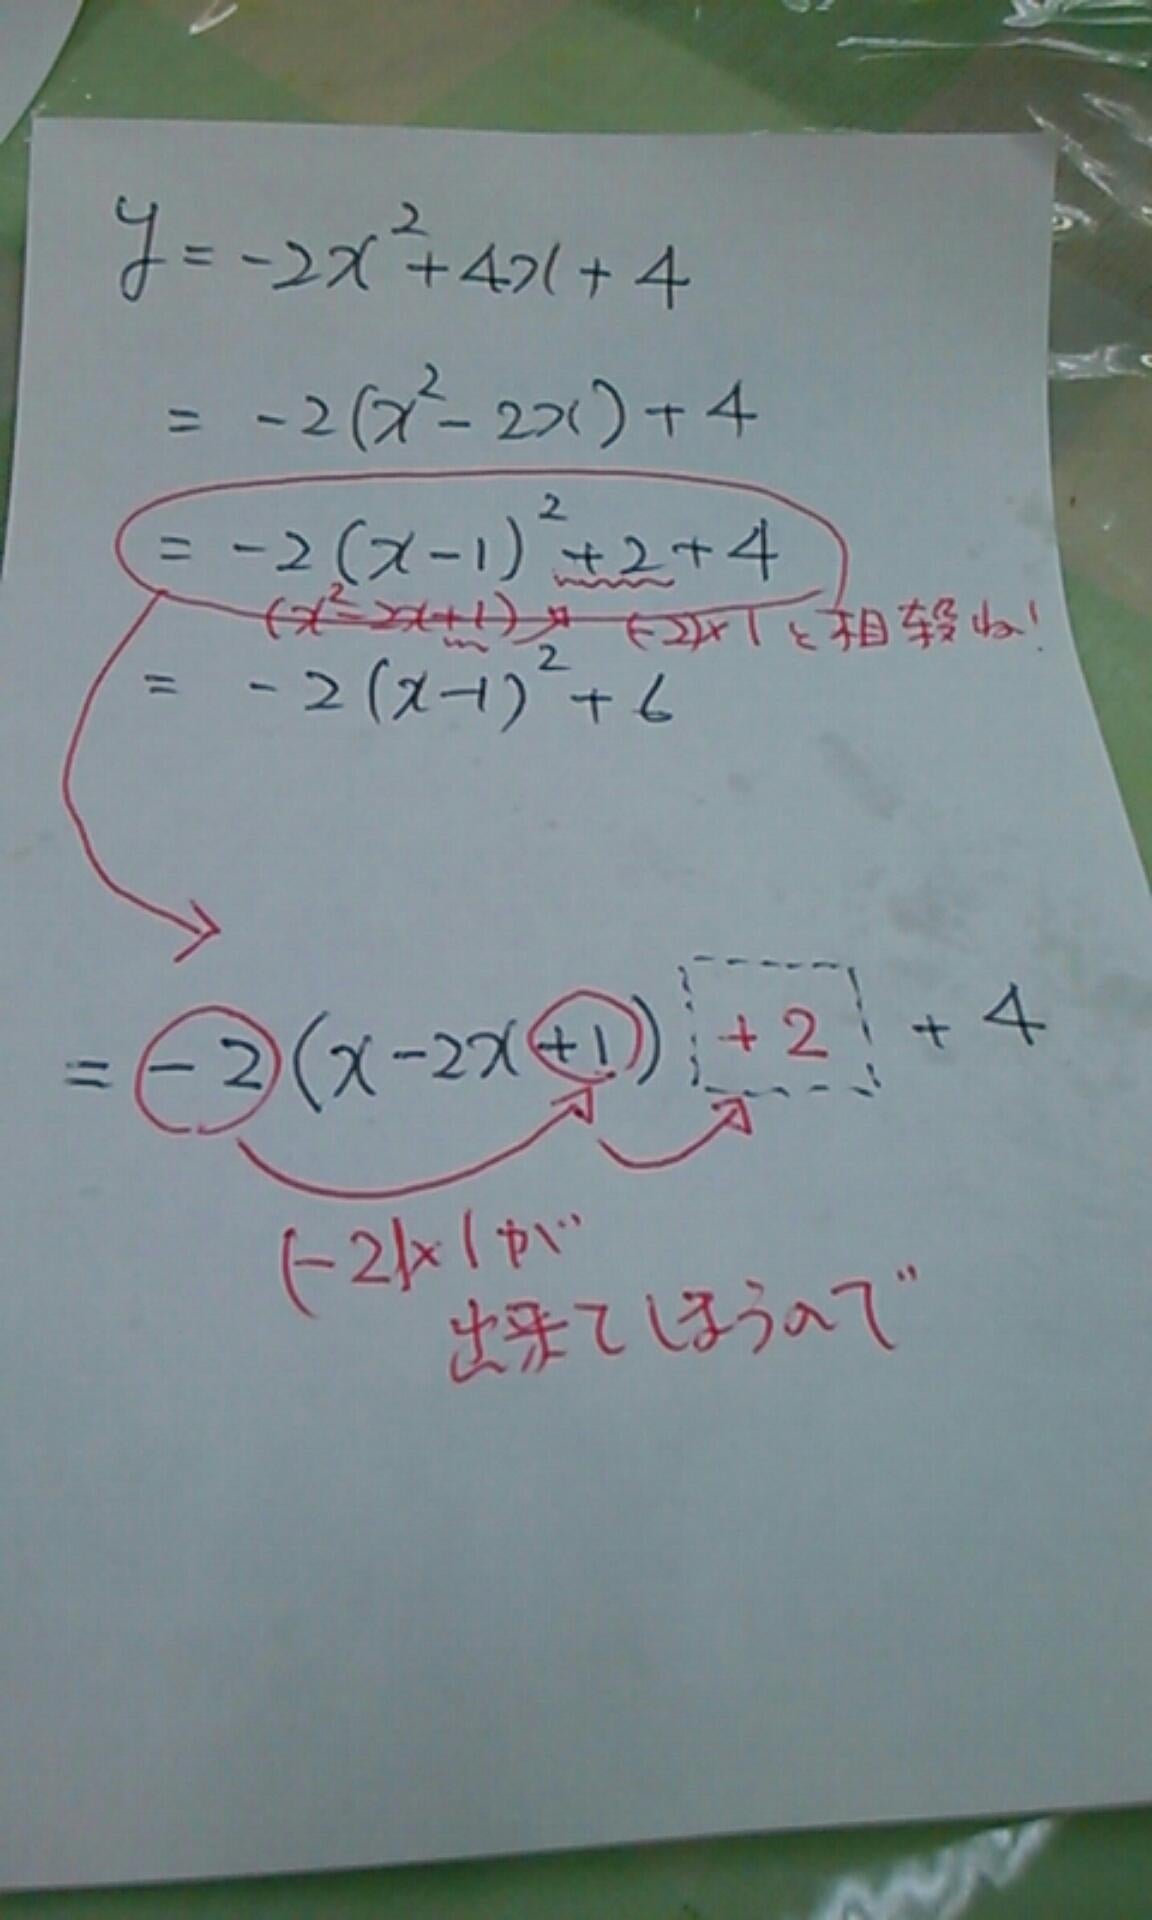 y = -2x² + 4x + 4
= -2(x² - 2x) + 4
= -2(x-1)² + 2 + 4
(x² - 2x + 1) (-2)×1と相殺ね!
= -2(x-1)² + 6
= -2(x-2x+1) +2 + 4
(-2)×1が
出来てしまうので